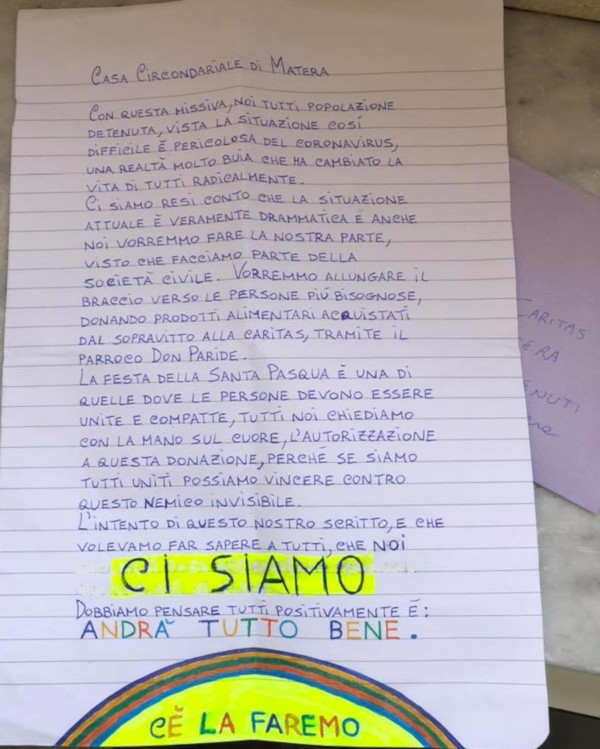 CASA CIRCONDARIALE DI MATERA
CON QUESTA MISSIVA, NOI TUTTI POPOLAZIONE
DETENUTA, VISTA LA SITUAZIONE COSÍ
DIFFICILE È PERICOLOSA DEL CORONAVIRUS,
UNA REALTÀ MOLTO BUIA CHE HA CAMBIATO LA
VITA DI TUTTI RADICALMENTE.
CI SIAMO RESI CONTO CHE LA SITUAZIONE
ATTUALE È VERAMENTE DRAMMATICA È ANCHE
NOI VORREMMO FARE LA NOSTRA PARTE,
VISTO CHE FACCIAMO PARTE DELLA
SOCIETÀ CIVILE. VORREMMO ALLUNGARE IL
BRACCIO VERSO LE PERSONE PIÚ BISOGNOSE,
DONANDO PRODOTTI ALIMENTARI ACQUISTATI
DAL SOPRAVITTO ALLA CARITAS, TRAMITE IL
PARROCO DON PARIDE.
LA FESTA DELLA SANTA PASQUA È UNA DI
QUELLE DOVE LE PERSONE DEVONO ESSERE
UNITE E COMPATTE, TUTTI NOI CHIEDIAMO
CON LA MANO SUL CUORE, L'AUTORIZZAZIONE
A QUESTA DONAZIONE, PERCHÉ SE SIAMO
TUTTI UNITI POSSIAMO VINCERE CONTRO
QUESTO NEMICO INVISIBILE.
L'INTENTO DI QUESTO NOSTRO SCRITTO, E CHE
VOLEVAMO FAR SAPERE A TUTTI, CHE NOI
CI SIAMO
DOBBIAMO PENSARE TUTTI POSITIVAMENTE È:
ANDRÀ TUTTO BENE.
CÈ LA FAREMO
CARITAS